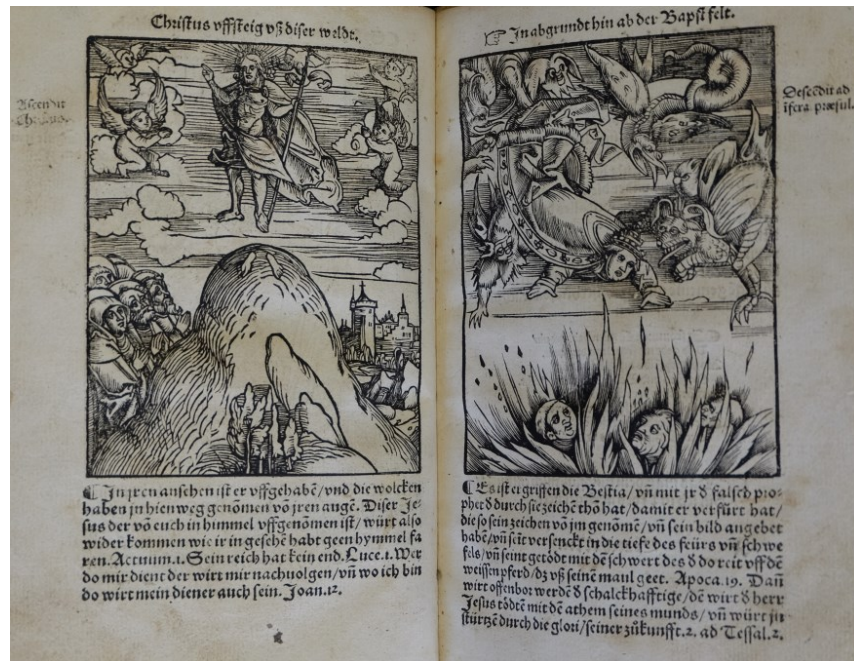 Christus vffsteig vß diser weldt.
Ascendit
Christus.
¶ In jren ansehen ist er vffgehabē/vnd die wolcken
haben jn hien weg genomen võ jren augē. Diser Je-
sus der võ euch in himmel vffgenomen ist/würt also
wider kommen wie ir in gesehē habt geen hymmel fa
ren. Actuum.1. Sein reich hat kein end. Luce.1. Wer
do mir dient der wirt mir nachuolgen/vñ wo ich bin
do wirt mein diener auch sein. Joan.12.
☞ In abgrundt hin ab der Bapst felt.
Descēdit ad
īfera præsul.
¶ Es ist ergriffen die Bestia/vñ mit jr d̄ falsch pro-
phet d̄ durch sie zeichē thon hat/damit er verfürt hat/
die so sein zeichen võ jm genomē/vñ sein bild angebet
habē/vñ seīt versenckt in die tiefe des feürs vñ schwe
fels/vñ seint getödt mit dē schwert des d̄ do reit vff dē
weissen pferd/dz vß seinē maul geet. Apoca.19. Dañ
wirt offenbor werdē d̄ schalckhafftige/dē wirt d̄ herr
Jesus tödtē mit dē athem seines munds/vñ würt jn
stürtzē durch die glori/seiner zůkunfft.2. ad Tessal.2.